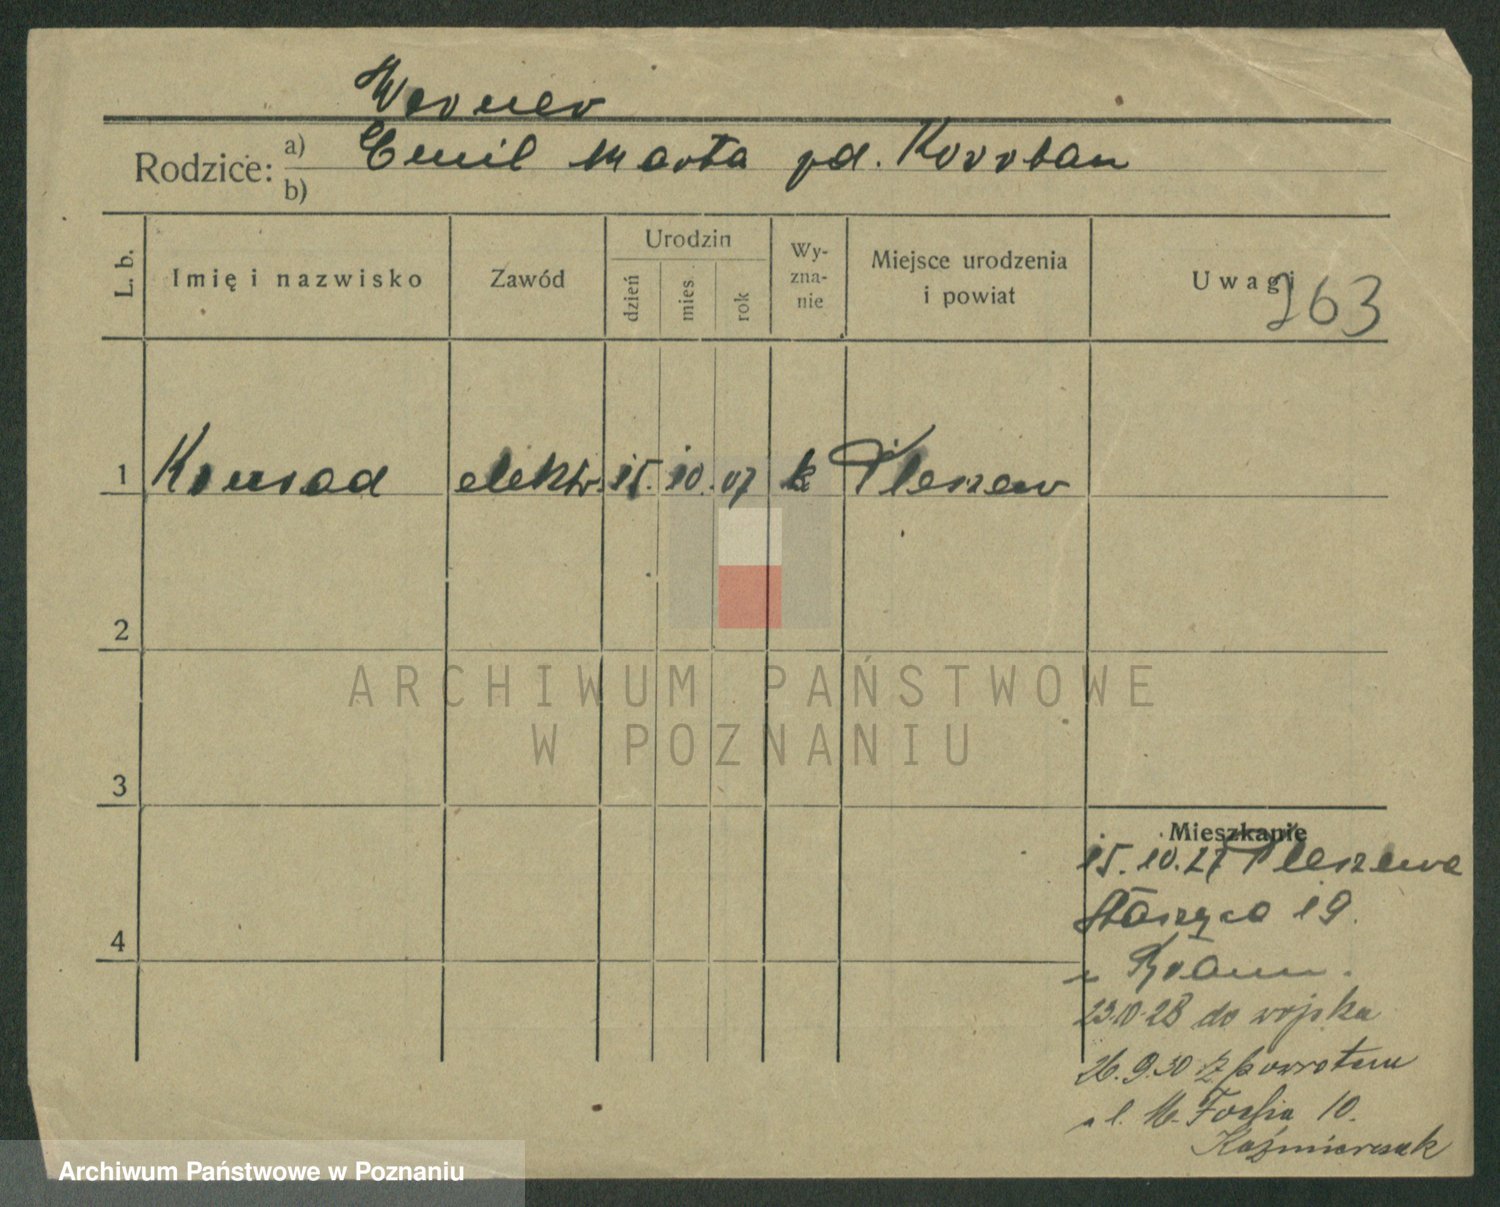 Werner
Rodzice: a) Emil Marta pd. Koroban
b)
L. b. Imię i nazwisko Zawód Urodzin dzień mies rok Wy-zna-nie Miejsce urodzenia i powiat Uwagi
263
1 Konrad elektr. 15. 10. 07 k Pleszew
2
3
4
Mieszkanie
15. 10. 27 Pleszewa
Staszyca 19.
23.10.28 do wojska
26.9.30 z powrotem
ul. M. Focha 10.
Kaźmierczak
ARCHIWUM PAŃSTWOWE
W POZNANIU
Archiwum Państwowe w Poznaniu